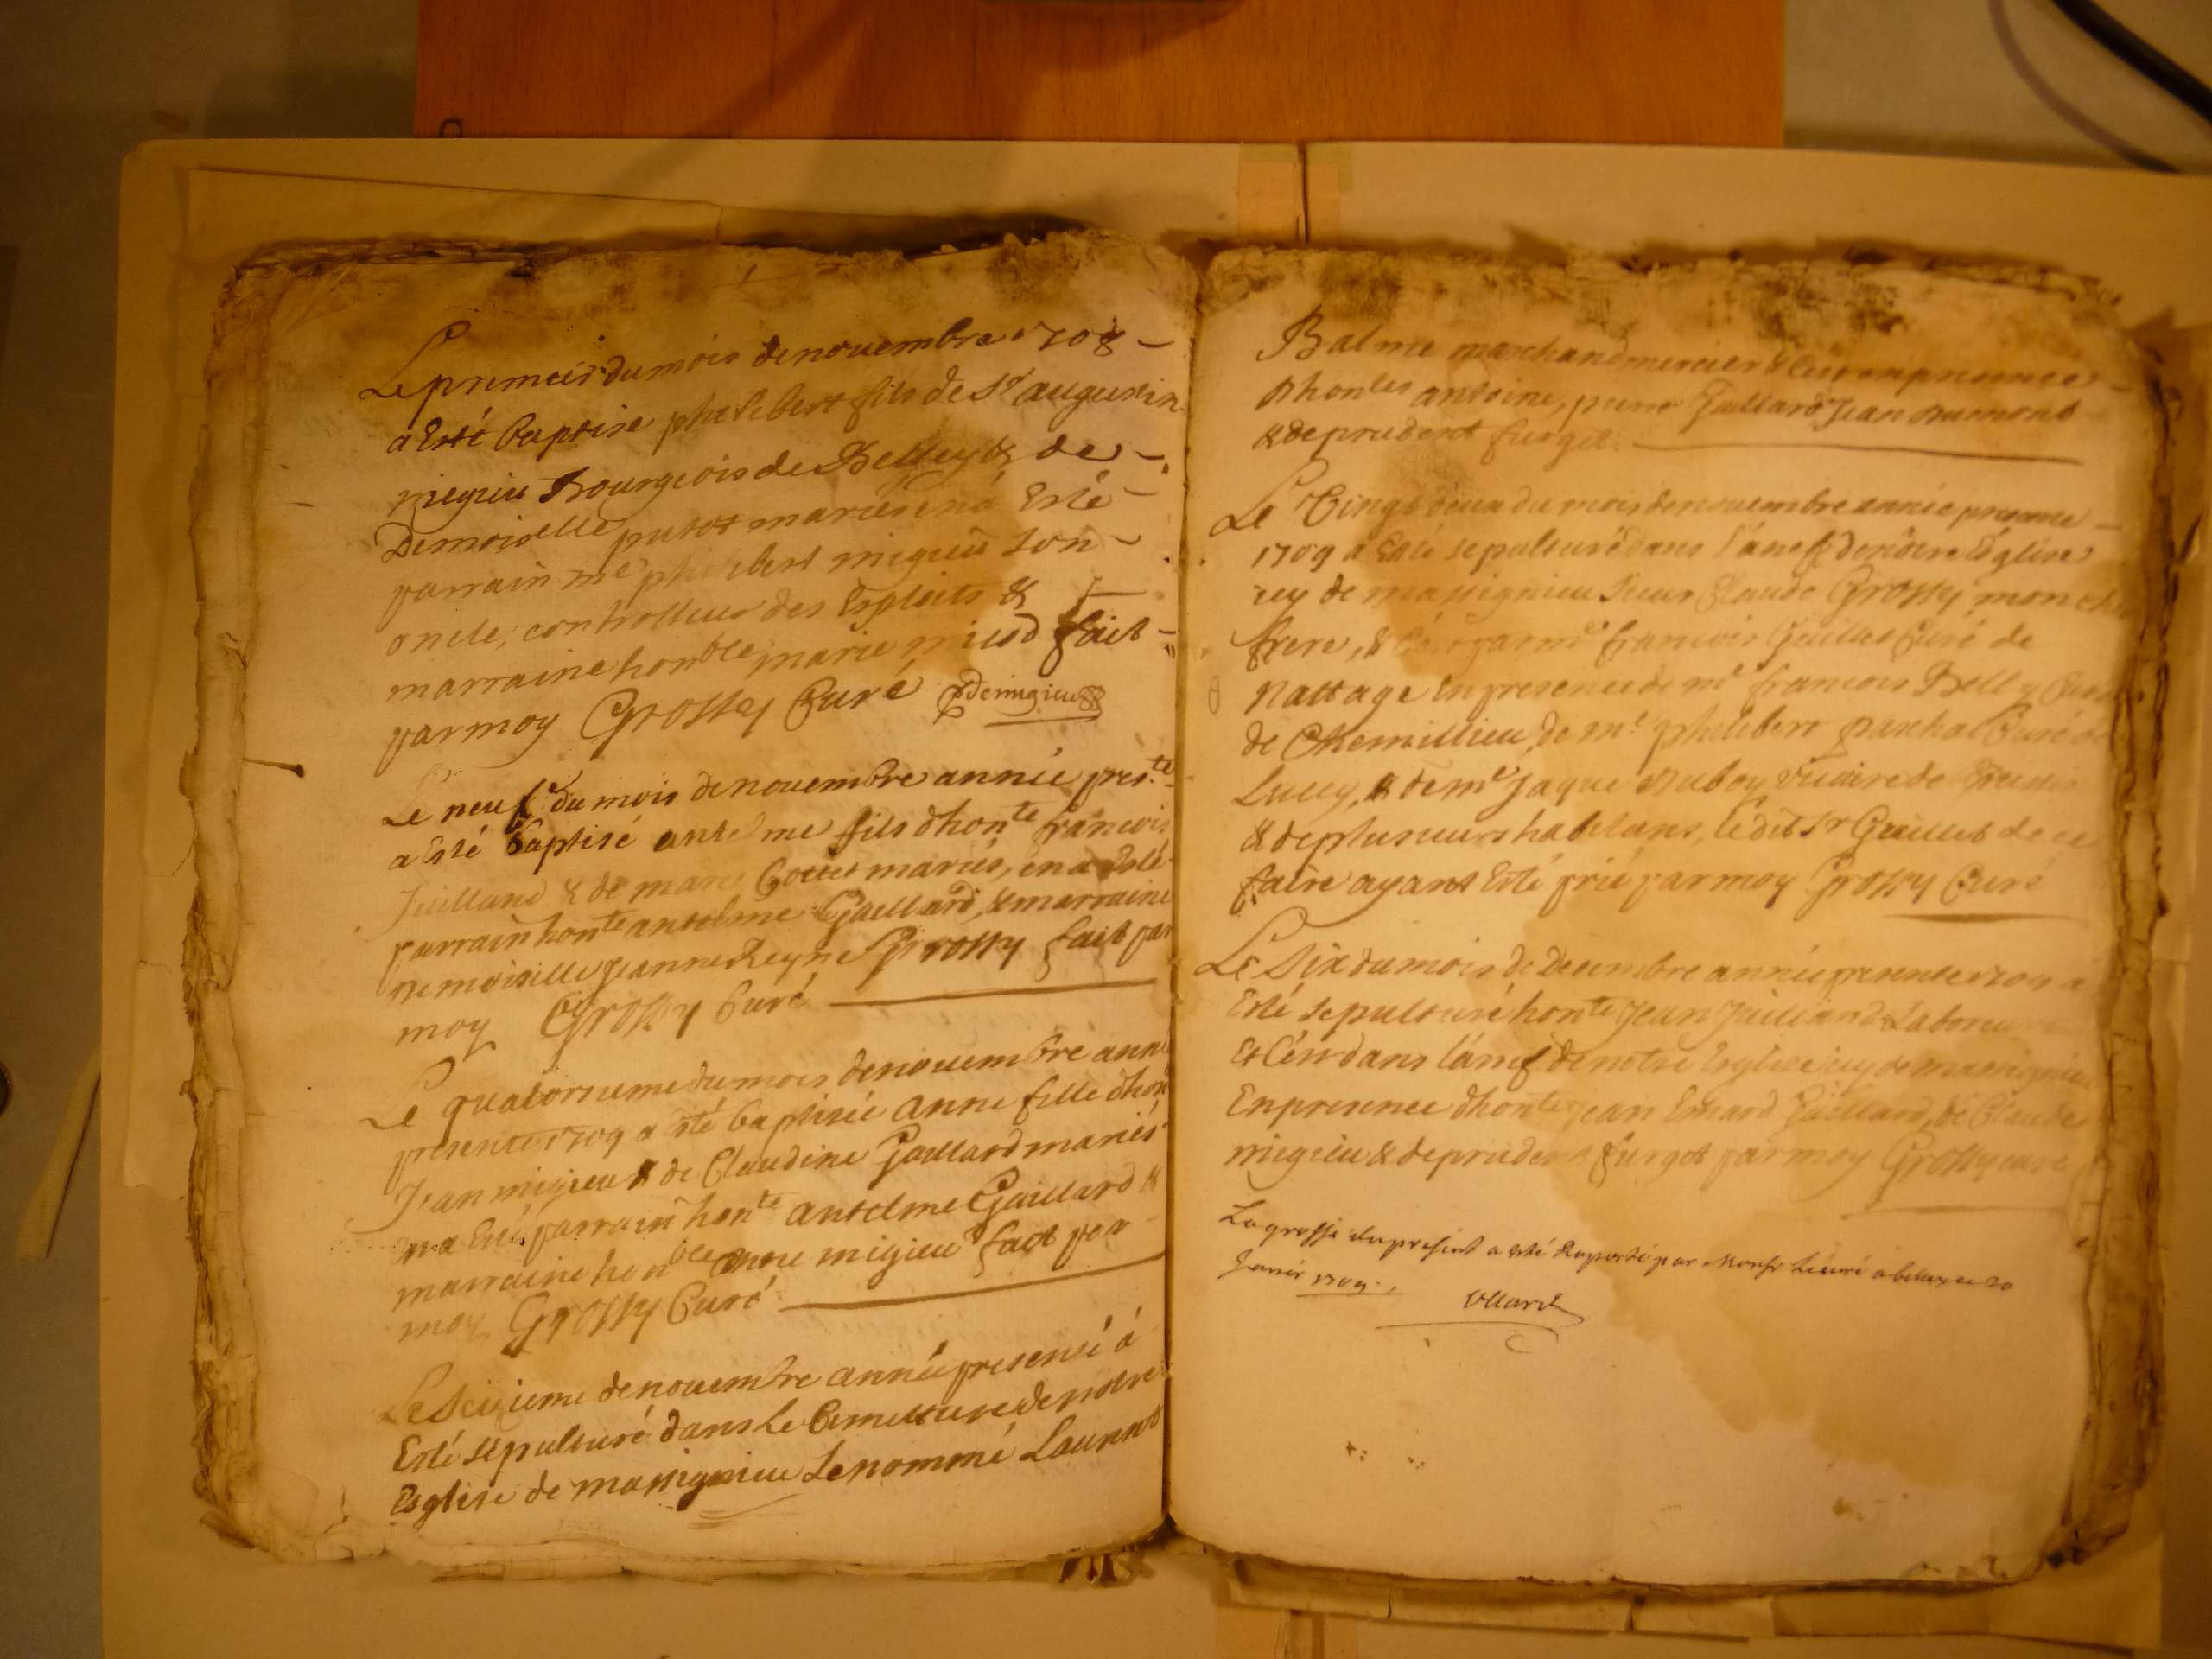 Le premeir du mois de nouembre 1708 –
a Esté baptise philibert fils de Sr augustin
migieu Bourgeois de Belley & de –
Demoiselle putot mariés, en a Esté –
parrain me philibert migieu son –
oncle, controlleur des Exploits & –
marraine honble marie fait –
par moy Grossy Curé Demigieu
Le neufe du mois de nouembre année preste
a Esté baptisé antelme fils dhonte francois
Juilland & de marie Cottet mariés, en a Esté
parrain honte antelme Gaillard, & marraine
Demoiselle Jeanne Reyne Grossy fait par
moy Grossy Curé
Le quatorsieme du mois de nouembre anné
presente 1709 a été baptisée anne fille dhon
Jean migieu & de Claudine Gaillard mariés
en a Esté parrain honte antelme Gaillard &
marraine honble anne migieu fait par
moy Grossy Curé
Le Seizieme de nouembre année presente à
Esté sépulturé dans Le Cimettiere de notre
Esglise de massignieu Le nommé Laurent
Balme marchand mercier & c'est en presence
dhontes antoine, pierre Gaillard Jean dumont
& de prudent furget
Le Vingt deux du mois de nouembre année presente –
1709 a Esté sepulturé dans l'anef de nôtre Églize
icy de massignieu Sieur Claude Grossy mon cher
frere, & c'est par me francois Guillet Curé de
Nattage En presence de me francois Belly Curé
de Chemillieu, de me philibert paschal Curé de
Lucey, & de me Jaque Duboy Vicaire de
& de plusieurs habitans, le dit Sr Guillet de ce
faire ayant Esté prié par moy Grossy Curé
Le Six du mois de Decembre année presente 1709 a
Esté sepulturé honte Jean Juilland Laboreur
Et c'est dans l'anef de notre Esglise icy de massignieu
En presence dhonte Jean Emard Gaillard, de Claude
migieu & de prudent furget par moy Grossy curé
La grosse du present a esté Raporté par Monsr Lecuré a belley ce 20
Janier 1709.
Vllard